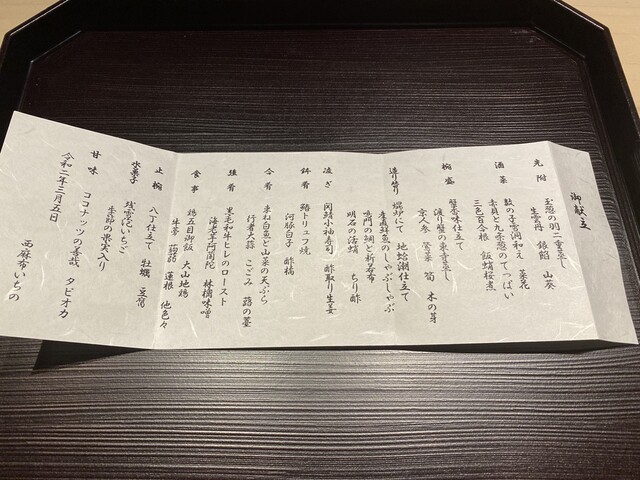 御献立
先附
玉葱の羽二重蒸し
生雲丹 銀餡 山葵
酒菜
数の子雪洞和え 菜花
赤貝と九条葱のてっぱい
三色百合根 飯蛸桜煮
椀盛
蟹香味仕立て
渡り蟹の東寺蒸し
京人参 鶯菜 筍 木の芽
造り替り
堀炉にて 地蛤潮仕立て
産直鮮魚のしゃぶしゃぶ
鳴門の鯛と新若布
明石の活蛸 ちり酢
凌ぎ
関鯖小袖寿司 酢取り生姜
鉢肴
鰆トリュフ焼
河豚白子 酢橘
合肴
束ね白魚と山菜の天ぷら
行者大蒜 こごみ 蕗の薹
強肴
黒毛和牛ヒレのロースト
海老芋阿蘭陀 林檎味噌
食事
鶏五目御飯 大山地鶏
牛蒡 蒟蒻 蓮根 他色々
止椀
八丁仕立て 牡蠣 豆腐
水菓子
淡雪泡いちご
季節の果実入り
甘味
ココナッツの善哉 タピオカ
令和二年三月五日
西麻布いちの